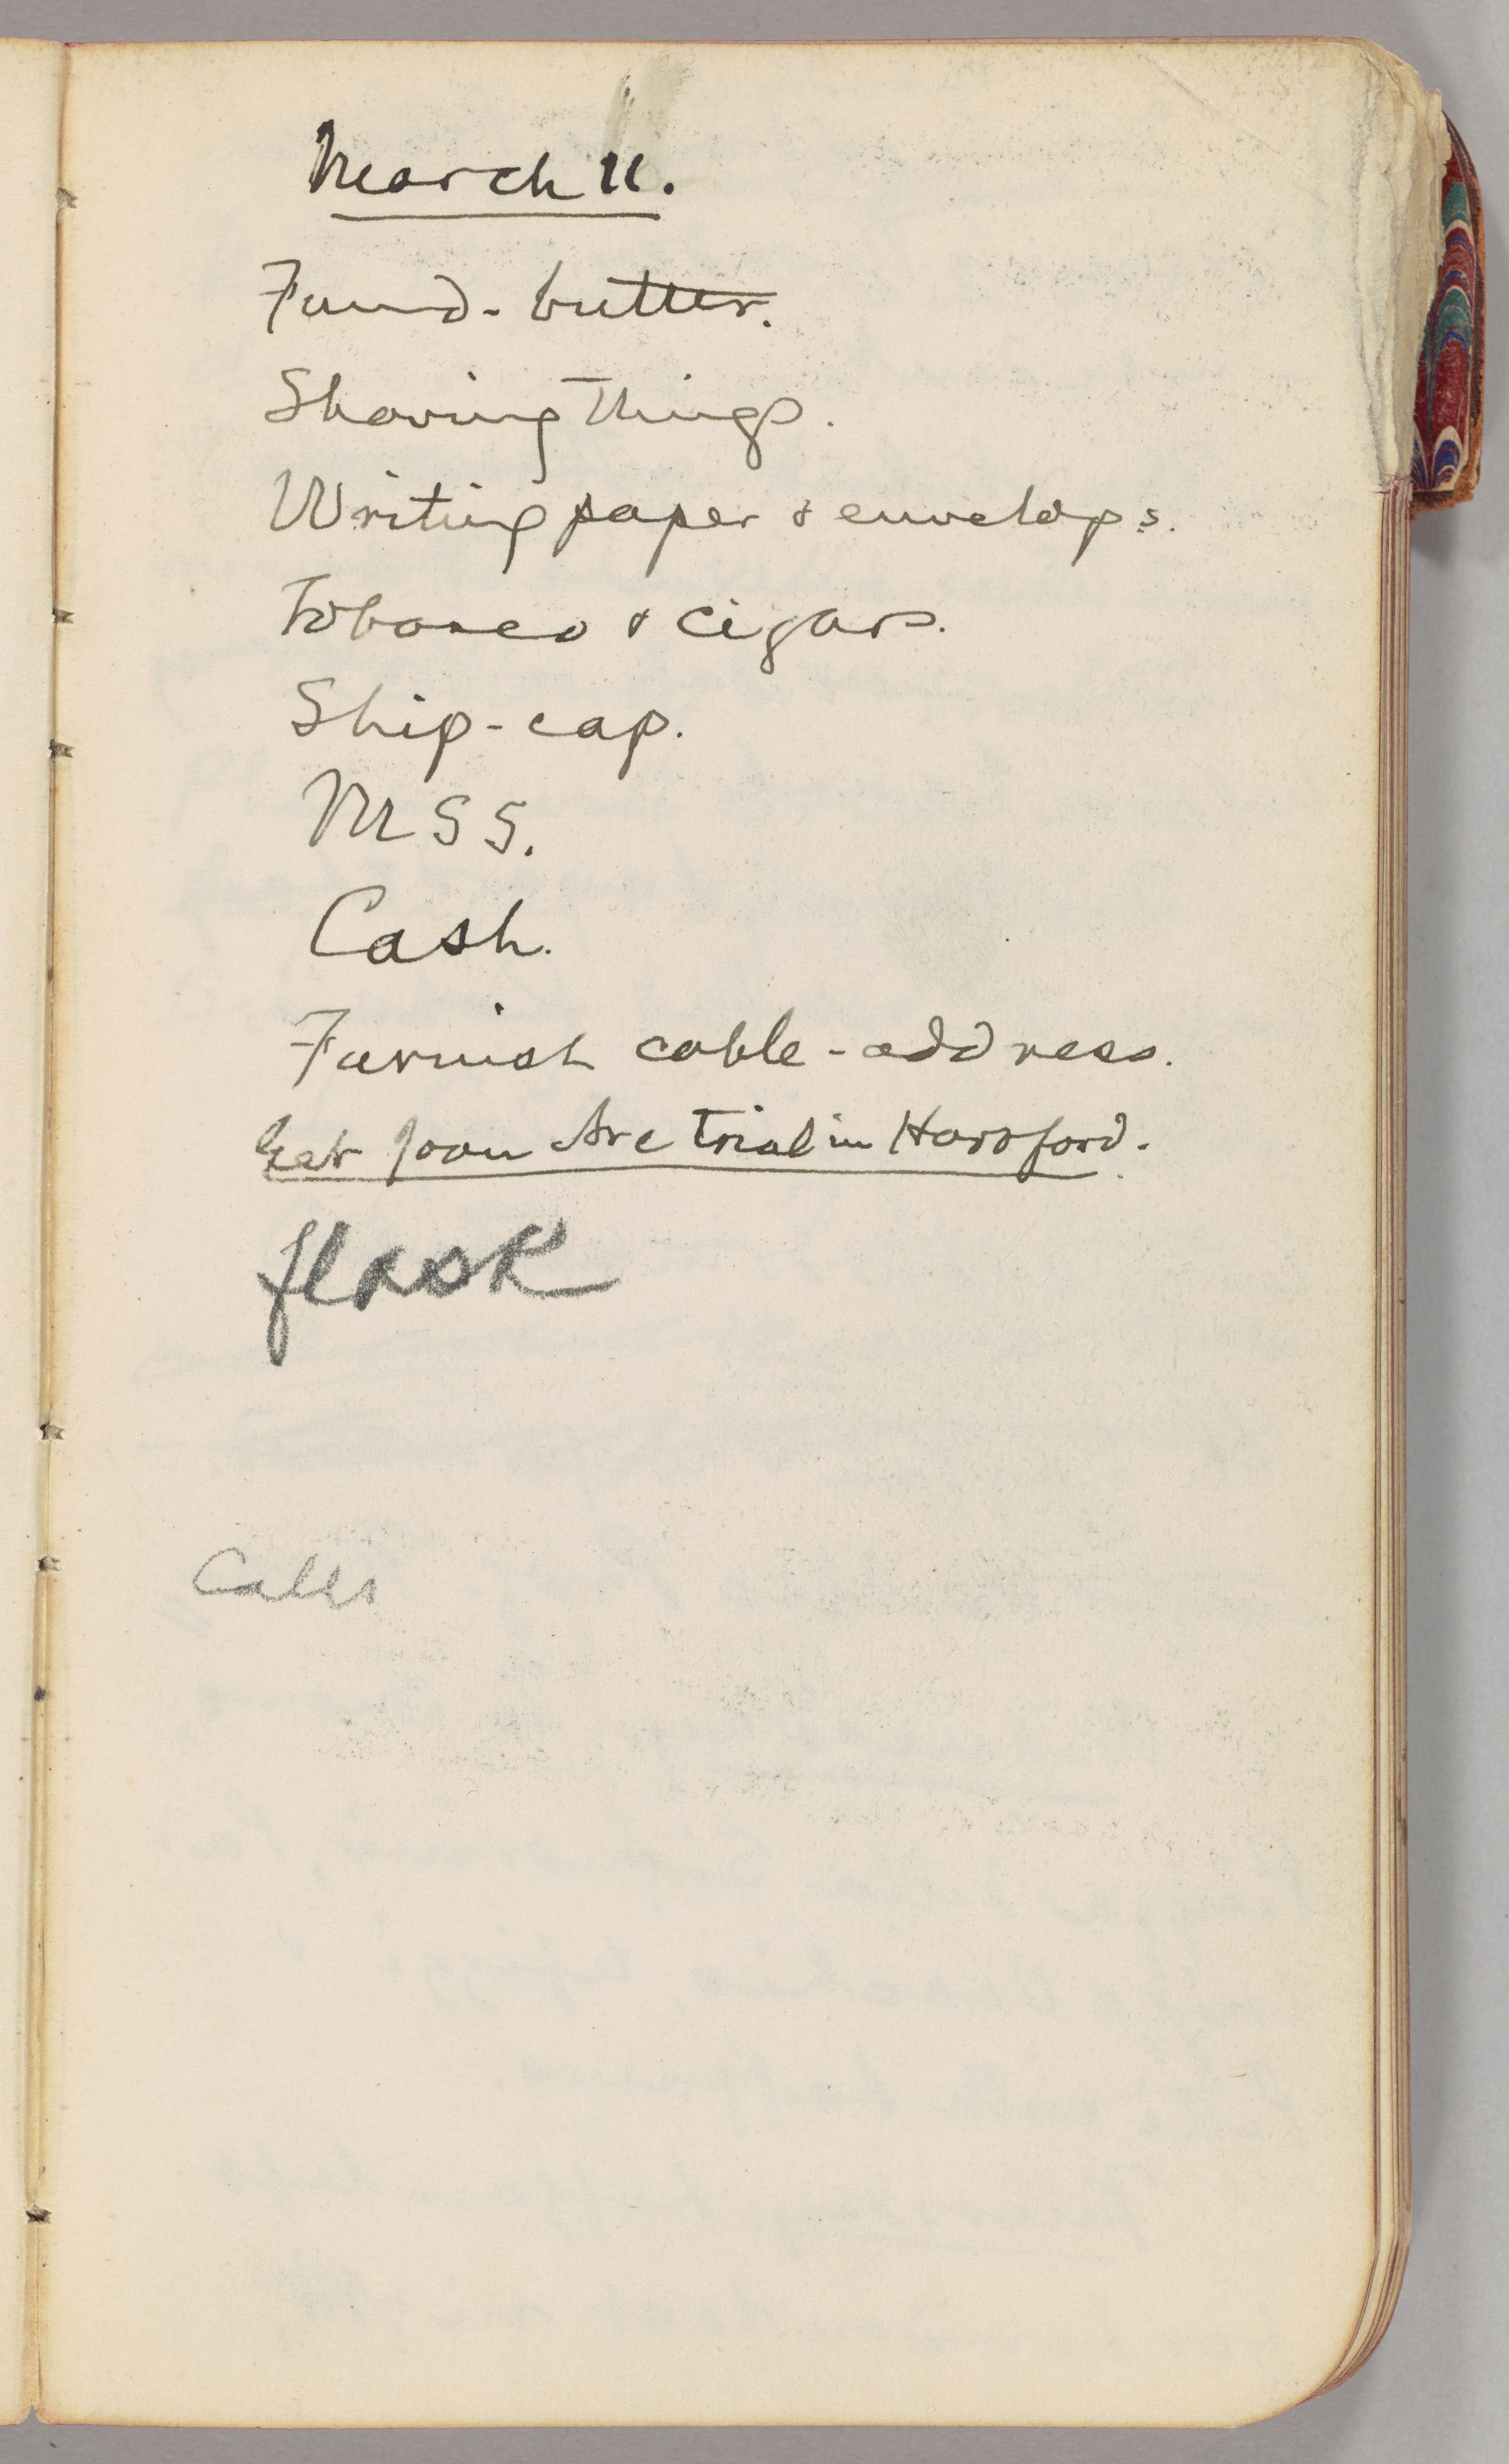 March 11.
Found - butter.
Shaving things.
Writing paper & envelops.
Tobacco & cigars.
Ship-cap.
MSS.
Cash.
Furnish cable-address.
Get Joan Arc trial in Hartford.
flask
Calls